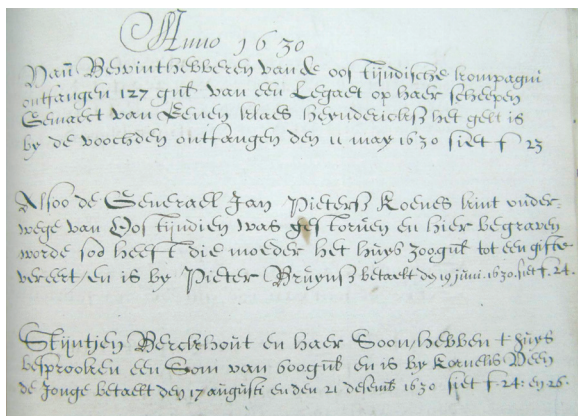 Anno 1630
Vanden Bewinthebberen van de oostijndische kompagni
ontfangen 127 gul van een Legaet op haer scheepen
Gemaect van Eenen klaes heyndericksz het gelt is
by de voochden ontfangen den 11 may 1630 siet f 23
Alsoo de Generaell Jan Pietersz Koenes kint onder-
wege van Oostijndien was gestorven en hier begraven
worde soo heeft die moeder het huys 300 gul tot een gifte
vereert/en is by Pieter Bruynsz betaelt dē 19 juni.1630.siet f.24.
Stijntjen Berckhout en haer Soon/hebben t huys
besprooken een Som van 600 gul en is by Kornelis Veen
de Jonge betaelt den 17 augusti en den 21 desemb 1630 siet f.24: en 26.